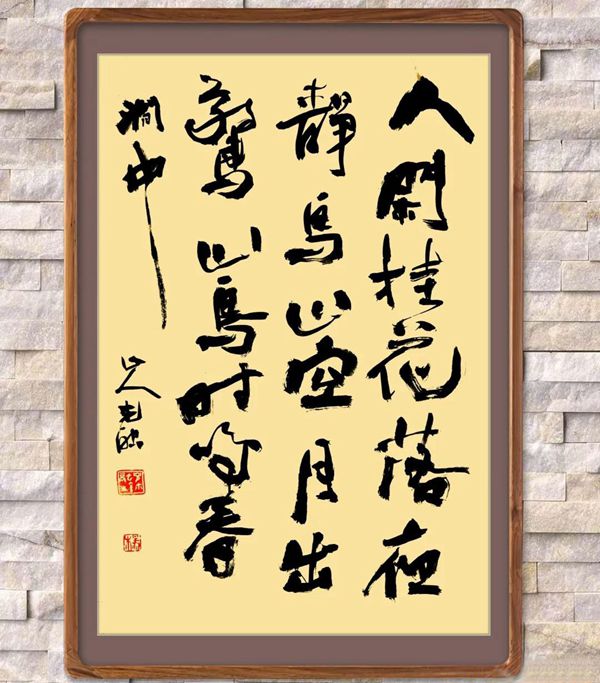 人閑桂花落夜
靜鳥山空月出
驚山鳥时鸣春
澗中
山人